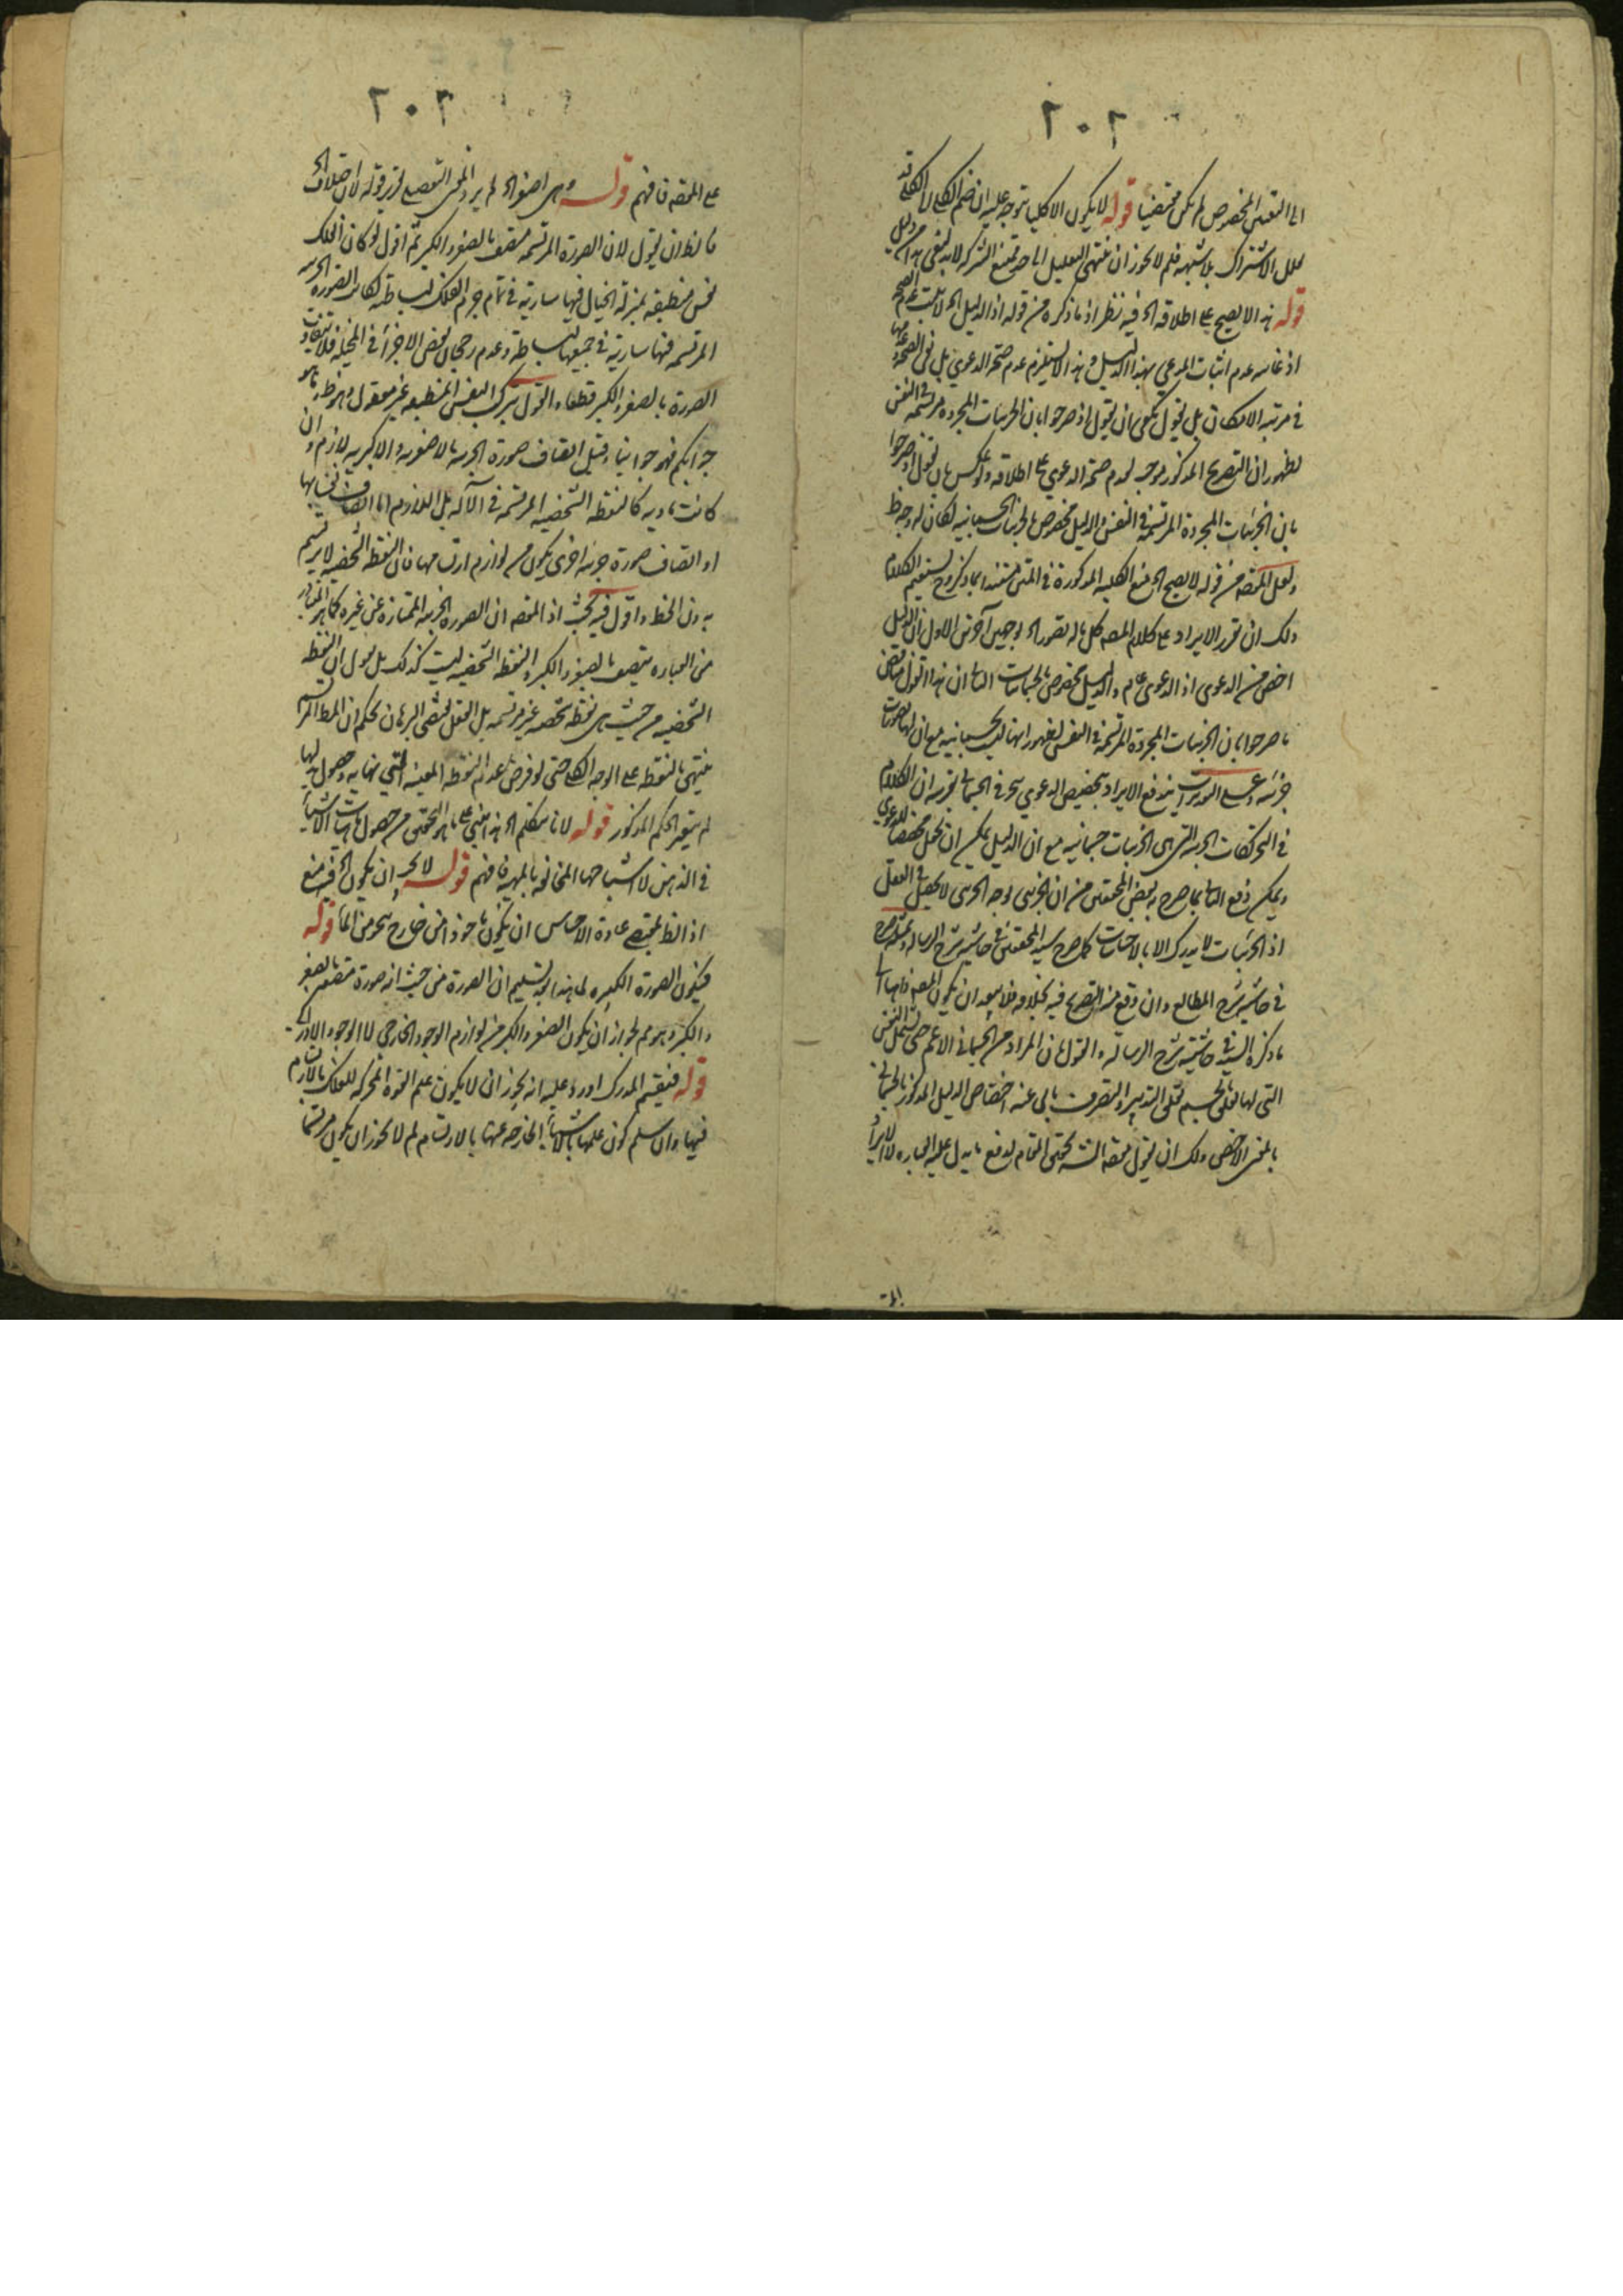 ٢٠٢
الى التعين المخصوص لم يكن مقتضيا قوله لا يكون الا كليا يتوجه عليه ان ضم الكلى الى الكلى قد
يقلل الاشتراك بلا شبهة فلم لا يجوز ان ينتهى التقليل الى حد يمتنع الشركة
قوله هذا لا يصح على اطلاقه الخ فيه نظر اذ ما ذكره من قوله اذ الدليل الخ لا يثبت عدم الصحة
اذ غايته عدم اثبات المدعى بهذا الدليل وهذا لا يستلزم عدم صحة الدعوى بل
فى مرتبة الامكان بل نقول يكفى ان يقول اذ صرحوا بان الجزئيات المجردة مرتسمة فى النفس
لظهور ان التصريح المذكور موجب لعدم صحة الدعوى على اطلاقه ولو عكس بان يقول اذ صرحوا
بان الجزئيات المجردة المرتسمة فى النفس والدليل مخصوص بالجزئيات الجسمانية لكان له وجه ظ
ولعل المقصود من قوله لا يصح الخ منع الكلية المذكورة فى المتن مستندا بما ذكر وح يستقيم الكلام
ولك ان تقرر الايراد على كلام المصنف كل ما له تصور الخ بوجهين آخرين الاول ان الدليل
اخص من الدعوى اذ الدعوى عام والدليل مخصوص بالجسمانيات الثانى ان هذا القول يناقض
ما صرحوا بان الجزئيات المجردة المرتسمة فى النفس لظهور انها ليست جسمانية مع ان لها تصورات
جزئية وعلى التقديرين يندفع الايراد بتخصيص الدعوى نحو فى الجسمانى بقرينة ان الكلام
فى التحركات الجزئية التى هى الجزئيات جسمانية مع ان الدليل يمكن ان يجعل مخصصا للدعوى
ويمكن دفع الثانى بما صرح به بعض المحققين من ان الجزئى وجه الجزئى لا يحصل فى العقل
اذ الجزئيات لا يدرك الا بالاحساسات كما صرح سيد المحققين فى حاشية شرح الرسالة وبمثله صرح
فى حاشية شرح المطالع وان وقع من التصريح فيه بخلافه فلا يبعد ان يكون المصنف ذاهبا الى
ما ذكره السيد فى حاشية شرح الرسالة والقول بان المراد من الجسمانى الاعم حتى يشمل النفس
التى لها تعلق بالجسم تعلق التدبير والتصرف يابى عنه اختصاص الدليل المذكور بالجسمانى
بالمعنى الاخص ولك ان تقول مقصود الشارح تحقيق المقام لدفع ما يدل عليه العبارة لا الايراد
٢٠٢
على المقصود فافهم قوله وهى اصغر الخ لم يرد المحشى التفصيل لتحرير قوله لان اختلاف الخ
فالظ ان يقول لان الصورة المرتسمة متصف بالصغر والكبر ثم اقول لو كان للفلك
نفس منطبعة بمنزلة الخيال فيها سارية فى تمام جرم الفلك لبساطته لكان الصورة الجزئية
المرتسمة فيها سارية فى جميعها لبساطة وعدم رجحان بعض الاجزاء فى المحلية فلا يتفاوت
الصورة بالصغر والكبر قطعا والقول بتركب النفس المنطبعة غير معقول وهو ظ ما هو
جوابكم فهو جوابنا وقيل اتصاف صورة الجزئية بالاصغرية والاكبرية لازم وان
كانت مادية كالنقطة الشخصية المرتسمة فى الآلة بل اللازم اما اتصاف نفسها بها
او اتصاف صورة جزئية اخرى يكون من لوازم ارتسامها فان النقطة الشخصية لا يرتسم
بدون الخط واقول فيه بحث اذ المقصود ان الصورة الجزئية الممتازة عن غيره كما هو المتبادر
من العبارة يتصف بالصغر والكبر والنقطة الشخصية ليست كذلك بل نقول ان النقطة
الشخصية من حيث هى نقطة شخصية غير مرتسمة بل العقل بمقتضى البرهان يحكم ان الخط المرتسم
ينتهى بالنقطة على الوجه الكلى حتى لو فرض عدم النقطة المعينة التى نهاية وحصول بدلها
لم يتغير الحكم المذكور قوله لانا نتكلم الخ هذا مبنى على ما هو التحقيق من حصول ماهيات الاشياء
فى الذهن لا اشباحها المخالفة بالمهية فافهم قوله لا يجوز ان يكون الخ فيه منع
اذ الظ بمقتضى عادة الاحساس ان يكون ماخوذا من خارج نحو من الماء قوله
فيكون الصورة الكبيرة لما هذا بعد تسليم ان الصورة من حيث انه صورة متصف بالصغر
والكبر وهو مم لجواز ان يكون الصغر والكبر من لوازم الوجود الخارجى لا الوجود الادراكى
قوله فينقسم المدرك اورد عليه انه يجوز ان لا يكون علم القوة المحركة للفلك بالارتسام
فيها وان سلم كون علمها بالاشياء الخارجة عنها بالارتسام لم لا يجوز ان يكون مرتسما